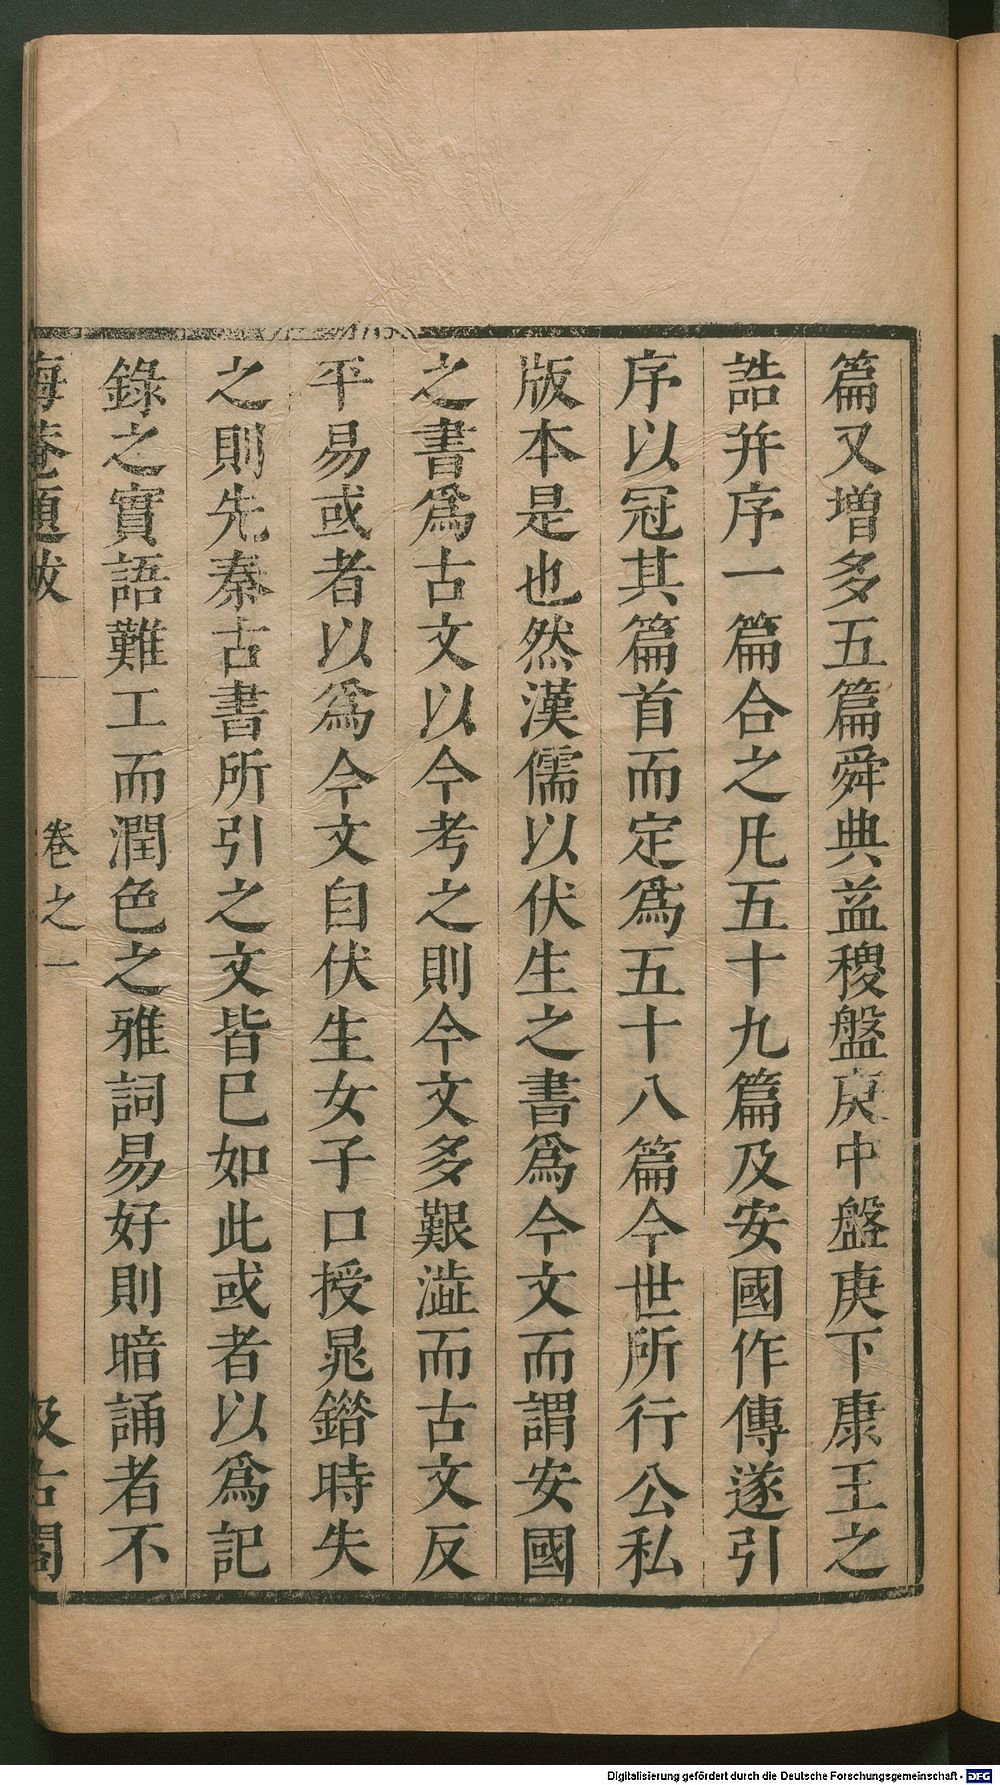 篇又增多五篇舜典益稷盤庚中盤庚下康王之
誥并序一篇合之凡五十九篇及安國作傳遂引
序以冠其篇首而定爲五十八篇今世所行公私
版本是也然漢儒以伏生之書爲今文而謂安國
之書爲古文以今考之則今文多艱澁而古文反
平易或者以爲今文自伏生女子口授晁錯時失
之則先秦古書所引之文皆巳如此或者以爲記
錄之實語難工而潤色之雅詞易好則暗誦者不
晦菴題跋 卷之一 汲古閣
Digitalisierung gefördert durch die Deutsche Forschungsgemeinschaft - DFG